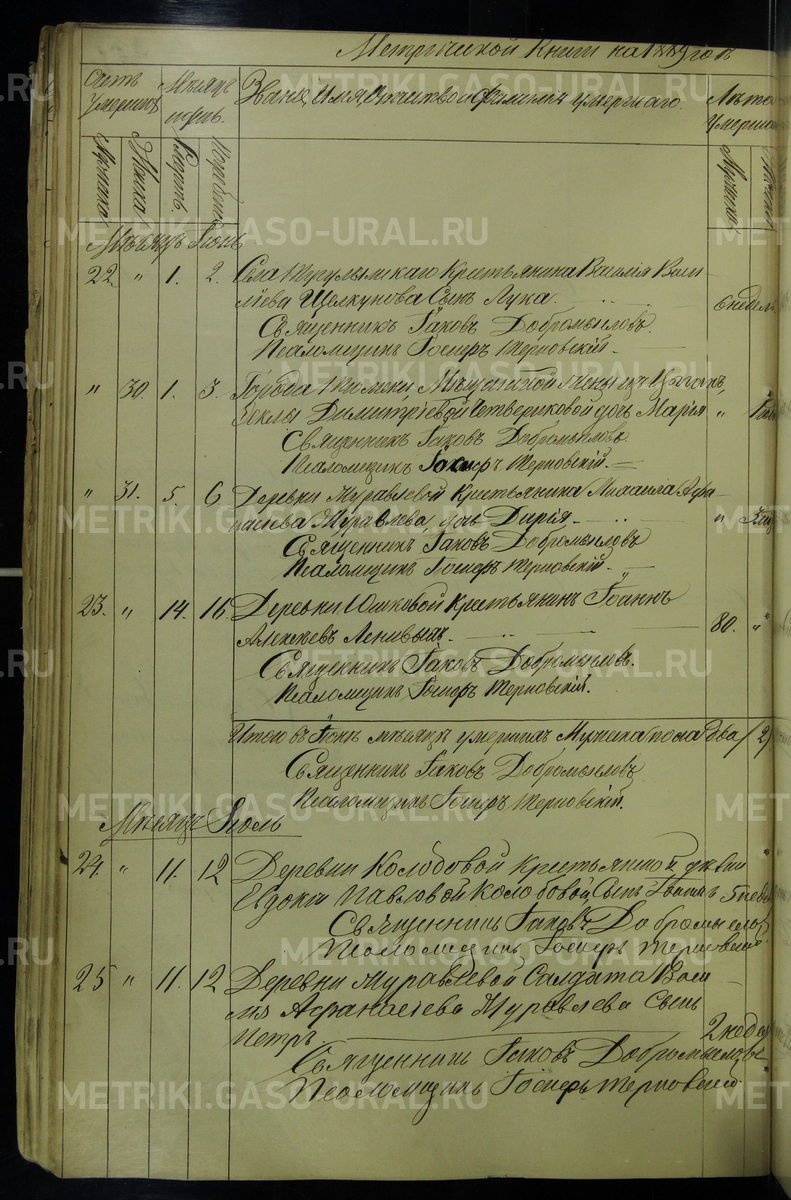 Метрической Книги на 1889 годъ
Счетъ умершихъ
Мѣсяцъ и день
Званіе, Имя, Отчество и Фамилія умершаго.
Лѣта умерша
Мужска
Женска
Погребен
Мужска
Мѣсяцъ Іюнь
22. " 1. 2. Села Тугулымскаго Крестьянина Василія Васи
лiева Щелкунова Сынъ Лука. 6 недель
Священникъ Іаковъ Добромысловъ.
Псаломщикъ Іосифъ Терновскій.
" 30. 1. 3. Города Тюмени,
Ѳеклы Димитріевой Четвериковой дочь Марія "
Священникъ Іаковъ Добромысловъ
Псаломщикъ Іосифъ Терновскій.
" 31. 5. 6 Деревни Муравлевой Крестьянина Михаила Афа
насьева Муравлева, дочь Дарія. "
Священникъ Іаковъ Добромысловъ
Псаломщикъ Іосифъ Терновскій.
23. " 14. 16. Деревни Юшковой Крестьянинъ Іоаннъ
Алексѣевъ Ленивыхъ. 80. "
Священникъ Іаковъ Добромысловъ.
Псаломщикъ Іосифъ Терновскій.
Итого въ Іюнѣ мѣсяцѣ умершихъ Мужска пола два /2/
Священникъ Іаковъ Добромысловъ
Псаломщикъ Іосифъ Терновскій.
Мѣсяцъ Іюль
24. " 11. 12 Деревни Колобовой крестьянской дѣвки
Евдокіи Павловой Колобовой, Сынъ
Священникъ Іаковъ Добромысловъ
Псаломщикъ Іосифъ Терновскій
25 " 11. 12 Деревни Муравлевой Салдата Васи
лія Афанасіева Муравлева Сынъ
Петръ 2 недел
Священникъ Іаковъ Добромысловъ
Псаломщикъ Іосифъ Терновскій
METRIKI.GASO-URAL.RU